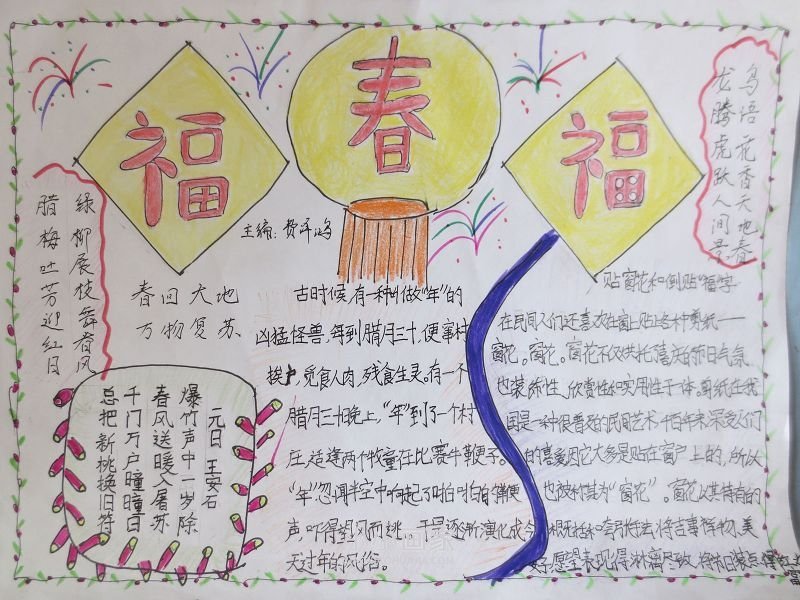 福
春
福
主编:
腊梅吐芳迎红日
绿柳展枝舞春风
春回大地
万物复苏
元日 王安石
爆竹声中一岁除
春风送暖入屠苏
千门万户曈曈日
总把新桃换旧符
古时候,有一种叫做“年”的
凶猛怪兽,每到腊月三十,便窜村
挨户,觅食人肉,残食生灵。有一个
腊月三十晚上,“年”到了一个村
庄,适逢两个牧童在比赛牛鞭子。
“年”忽闻半空中响起了啪啪的鞭
声,吓得望风而逃
天过年的风俗。
鸟语花香天地春
龙腾虎跃人间景
贴窗花和倒贴“福”字
在民间人们还喜欢在窗上贴上各种剪纸——
窗花。窗花。窗花不仅烘托了喜庆的节日气氛,
也装饰性、欣赏性和实用性于一体。剪纸在我
国是一种很普及的民间艺术,千百年来深受人们
的喜爱,因它大多是贴在窗户上的,所以
也被称其为“窗花”。窗花以其特有的
概括和夸张手法将吉事祥物、美
好愿望表现得淋漓尽致,将节日装点得